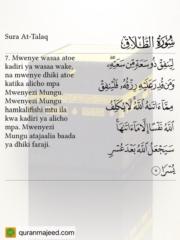 Sura At-Talaq
سُورَةُ الطَّلَاقِ
7. Mwenye wasaa atoe
kadiri ya wasaa wake,
na mwenye dhiki atoe
katika alicho mpa
Mwenyezi Mungu.
Mwenyezi Mungu
hamkalifishi mtu ila
kwa kadiri ya alicho
mpa. Mwenyezi
Mungu atajaalia baada
ya dhiki faraji.
لِيُنفِقْ ذُو سَعَةٍ مِّن سَعَتِهِ
وَمَن قُدِرَ عَلَيْهِ رِزْقُهُ فَلْيُنفِقْ
مِمَّا آتَاهُ اللَّهُ لَا يُكَلِّفُ
اللَّهُ نَفْسًا إِلَّا مَا آتَاهَا
سَيَجْعَلُ اللَّهُ بَعْدَ عُسْرٍ
يُسْرًا ٧
quranmajeed.com